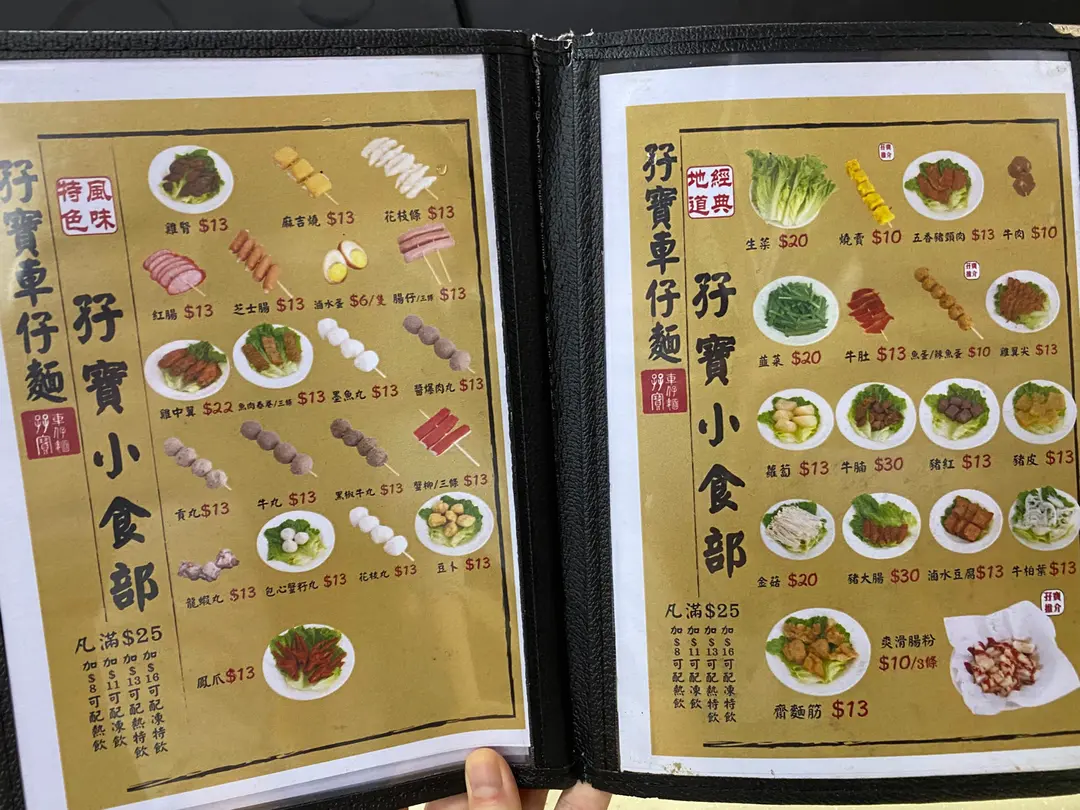 孖寶車仔麵
孖寶
車仔麵
風味特色
孖寶小食部
雞腎 $13
麻吉燒 $13
花枝條 $13
紅腸 $13
芝士腸 $13
滷水蛋 $6/隻
腸仔/三條 $13
雞中翼 $22
魚肉春卷/三條 $13
墨魚丸 $13
醬爆肉丸 $13
貢丸 $13
牛丸 $13
黑椒牛丸 $13
蟹柳/三條 $13
龍蝦丸 $13
包心蟹籽丸 $13
花枝丸 $13
豆卜 $13
鳳爪 $13
凡滿$25
加$8可配熱飲
加$11可配凍飲
加$13可配熱特飲
加$16可配凍特飲
孖寶車仔麵
孖寶
車仔麵
經典地道
孖寶小食部
生菜 $20
孖寶推介
燒賣 $10
五香豬頸肉 $13
牛肉 $10
韮菜 $20
牛肚 $13
孖寶推介
魚蛋/辣魚蛋 $10
雞翼尖 $13
蘿蔔 $13
牛腩 $30
豬紅 $13
豬皮 $13
金菇 $20
豬大腸 $30
滷水豆腐 $13
牛柏葉 $13
齋麵筋 $13
爽滑腸粉
$10/3條
孖寶推介
凡滿$25
加$8可配熱飲
加$11可配凍飲
加$13可配熱特飲
加$16可配凍特飲